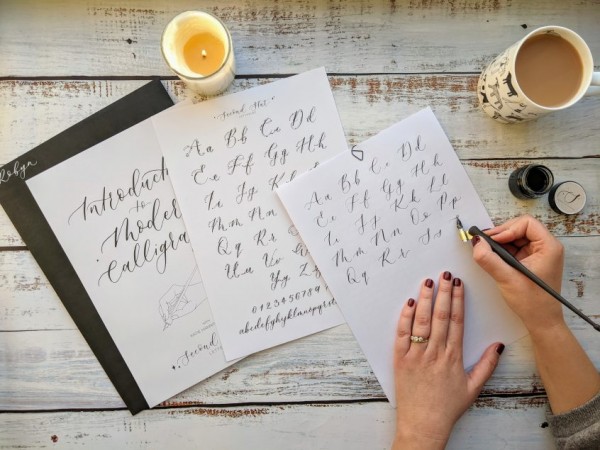 Robyn
Introduct
to
Modern
Calligra
Second
Second Star
Aa Bb Cc Dd
Ee Ff Gg Hh
Ii Jj K
Mm Nn
Qq Rr
Uu Vv
Yy Z
0123456789
abcdefghijklmnopqrst
Aa Bb Cc Dd
Ee Ff Gg Hh
Ii Jj Kk Ll
Mm Nn Oo Pp
Qq Rr Ss